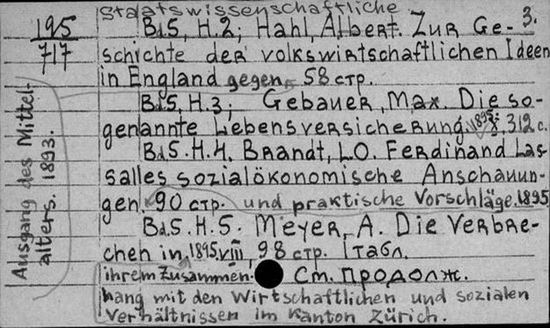 Staatswissenschaftliche 3.
195
717
Bd5, H.2; Hahl, Albert. Zur Ge-
schichte der volkswirtschaftlichen Ideen
in England gegen 58 стр.
Bd5, H.3; Gebauer, Max. Die so-
genannte Lebensversicherung. 1895. 312 с.
Bd5. H.4. Brandt, LO. Ferdinand Las
salles sozialökonomische Anschauun-
gen. 90 стр. und praktische Vorschläge. 1895
Bd5. H.5. Meyer, A. Die Verbre-
chen in, 1895. VIII, 98 стр. 1 табл.
ihrem Zusammen- См. продолж.
hang mit den Wirtschaftlichen und sozialen
Verhältnissen im Kanton Zürich.
Ausgang des Mittel-
alters. 1893.